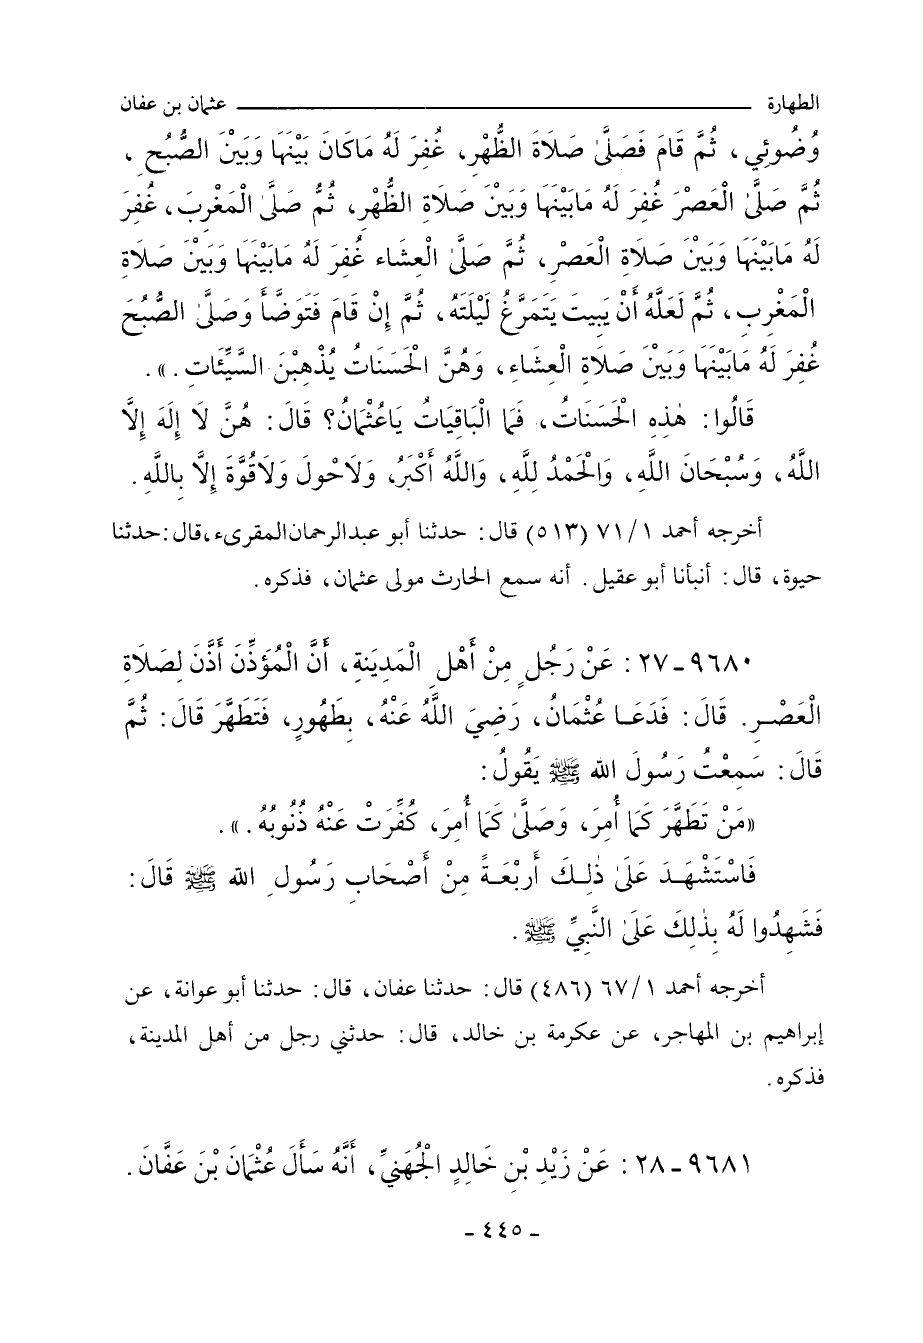 الطهارة ــــــــــــــــ عثمان بن عفان
وُضُوئِي، ثُمَّ قَامَ فَصَلَّىٰ صَلَاةَ الظُّهْرِ، غُفِرَ لَهُ مَاكَانَ بَيْنَهَا وَبَيْنَ الصُّبْحِ،
ثُمَّ صَلَّىٰ الْعَصْرَ غُفِرَ لَهُ مَابَيْنَهَا وَبَيْنَ صَلَاةِ الظُّهْرِ، ثُمَّ صَلَّىٰ الْمَغْرِبَ، غُفِرَ
لَهُ مَابَيْنَهَا وَبَيْنَ صَلَاةِ الْعَصْرِ، ثُمَّ صَلَّىٰ الْعِشَاءَ غُفِرَ لَهُ مَابَيْنَهَا وَبَيْنَ صَلَاةِ
الْمَغْرِبِ، ثُمَّ لَعَلَّهُ أَنْ يَبِيتَ يَتَمَرَّغُ لَيْلَتَهُ، ثُمَّ إِنْ قَامَ فَتَوَضَّأَ وَصَلَّىٰ الصُّبْحَ
غُفِرَ لَهُ مَابَيْنَهَا وَبَيْنَ صَلَاةِ الْعِشَاءِ، وَهُنَّ الْحَسَنَاتُ يُذْهِبْنَ السَّيِّئَاتِ.».
قَالُوا: هٰذِهِ الْحَسَنَاتُ، فَمَا الْبَاقِيَاتُ يَاعُثْمَانُ؟ قَالَ: هُنَّ لَا إِلَهَ إِلَّا
اللَّهُ، وَسُبْحَانَ اللَّهِ، وَالْحَمْدُ لِلَّهِ، وَاللَّهُ أَكْبَرُ، وَلَاحَوْلَ وَلَاقُوَّةَ إِلَّا بِاللَّهِ.
أخرجه أحمد ٧١/١ (٥١٣) قال: حدثنا أبو عبدالرحمان المقرىء، قال: حدثنا
حيوة، قال: أنبأنا أبو عقيل. أنه سمع الحارث مولى عثمان، فذكره.
٩٦٨٠-٢٧: عَنْ رَجُلٍ مِنْ أَهْلِ الْمَدِينَةِ، أَنَّ الْمُؤَذِّنَ أَذَّنَ لِصَلَاةِ
الْعَصْرِ. قَالَ: فَدَعَا عُثْمَانُ، رَضِيَ اللَّهُ عَنْهُ، بِطَهُورٍ، فَتَطَهَّرَ قَالَ: ثُمَّ
قَالَ: سَمِعْتُ رَسُولَ اللهِ ﷺ يَقُولُ:
«مَنْ تَطَهَّرَ كَمَا أُمِرَ، وَصَلَّىٰ كَمَا أُمِرَ، كُفِّرَتْ عَنْهُ ذُنُوبُهُ.».
فَاسْتَشْهَدَ عَلَىٰ ذٰلِكَ أَرْبَعَةً مِنْ أَصْحَابِ رَسُولِ اللهِ ﷺ قَالَ:
فَشَهِدُوا لَهُ بِذٰلِكَ عَلَىٰ النَّبِيِّ ﷺ.
أخرجه أحمد ٦٧/١ (٤٨٦) قال: حدثنا عفان، قال: حدثنا أبو عوانة، عن
إبراهيم بن المهاجر، عن عكرمة بن خالد، قال: حدثني رجل من أهل المدينة،
فذكره.
٩٦٨١-٢٨: عَنْ زَيْدِ بْنِ خَالِدٍ الْجُهَنِيِّ، أَنَّهُ سَأَلَ عُثْمَانَ بْنَ عَفَّانَ.
- ٤٤٥ -